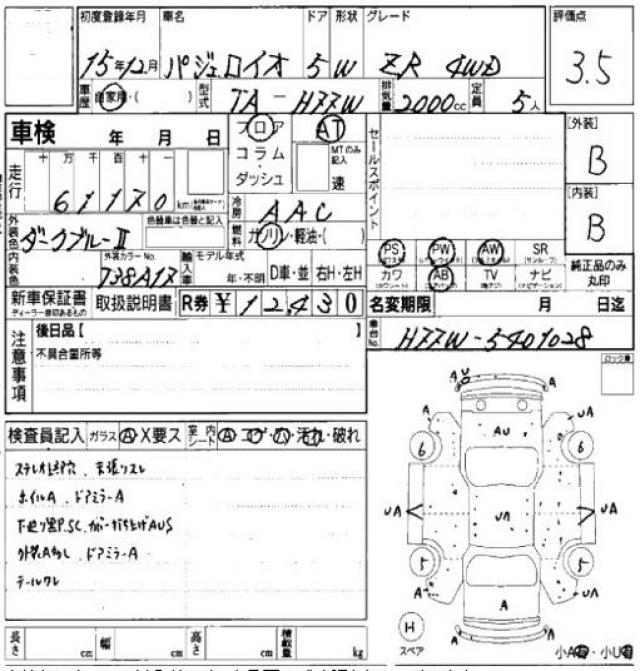 初度登録年月 車名 ドア 形状 グレード 評価点
15年12月 パジェロイオ 5 W ZR 4WD 3.5
車歴 自家用・( ) 型式 TA-H77W 排気量 2000cc 定員 5人
車検 年 月 日 フロア AT セールスポイント [外装]
コラム MTのみ記入 B
ダッシュ 速
走行 十 万 千 百 十 一
61170 km
冷房 AAC [内装]
B
外装色 ダークブルーII 色替車は色替と記入 燃料 ガソリン・軽油・( )
PS PW AW SR
内装色 外装カラーNo. 738A17 輸入車 モデル年式 年・不明 D車・並 右H・左H
カワ AB TV ナビ 純正品のみ丸印
新車保証書 取扱説明書 R券 ¥12,430 名変期限 月 日迄
ディーラー捺印あるもの
注意事項 後日品【 】
車台No. H77W-5401028
不具合箇所等
ロック車
検査員記入 ガラス A・X要ス 室内シート A・コゲ・穴・汚れ・破れ
ホイルA、ドアミラーA
ドアミラーA
テールワレ
A U
A A
A UA
AU
6 6
UA UA UA
5 5
A A UA
H
スペア
A A
長さ cm 幅 cm 高さ cm 積載量 kg
小A有・小U有